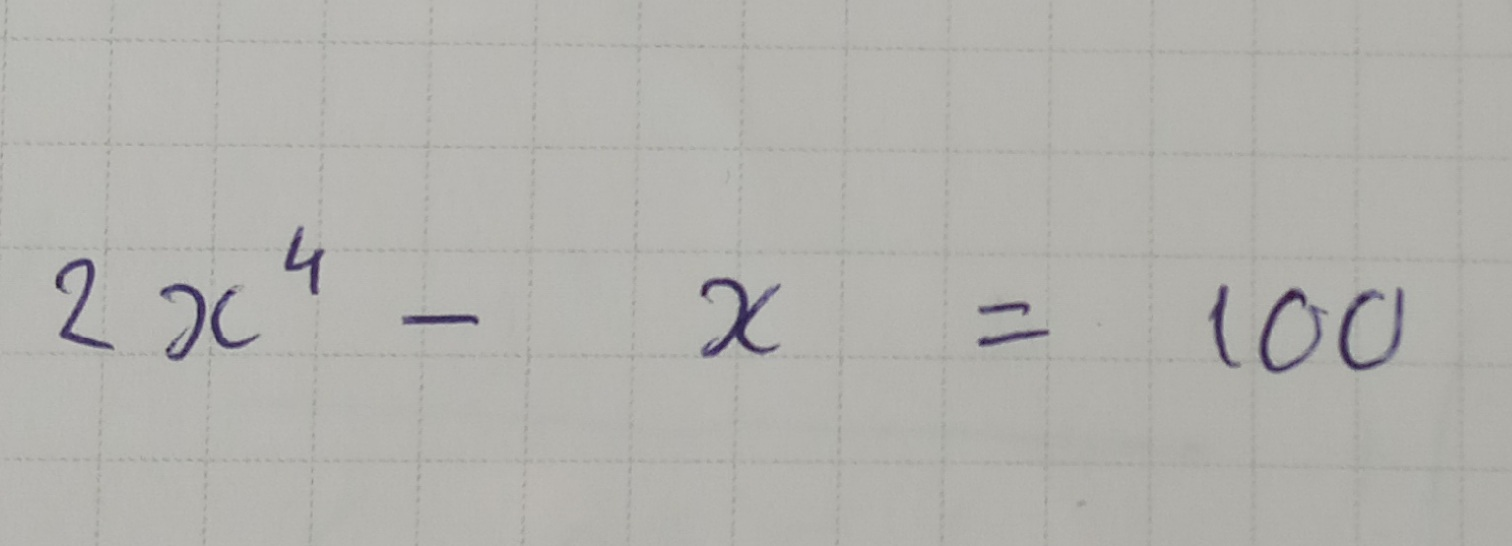 2x⁴ - x = 100